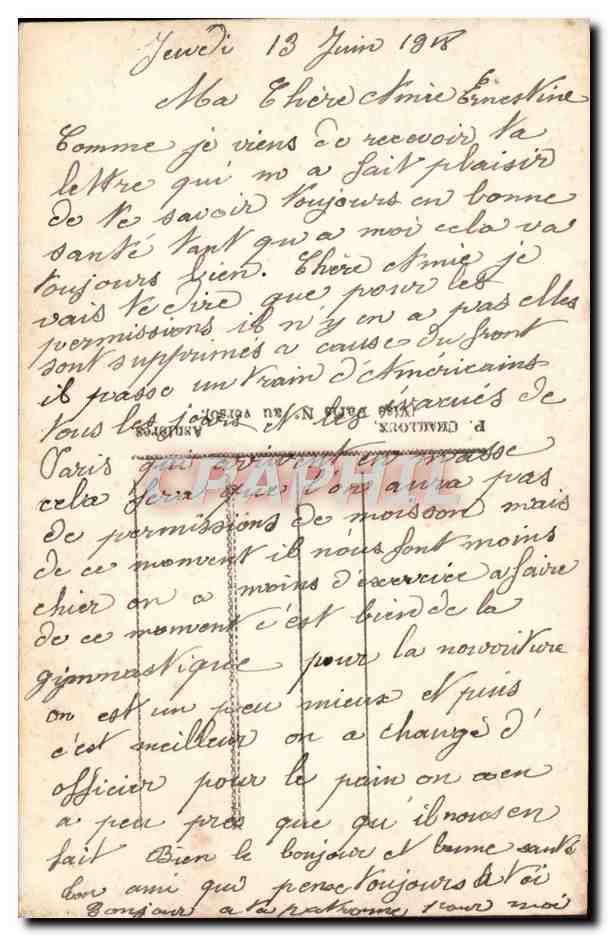 Jeudi 13 Juin 1918
Ma Chère Amie Ernestine
Comme je viens de recevoir ta
lettre qui m a fait plaisir
de te savoir toujours en bonne
santé tant qu a moi cela va
toujours bien. Chère Amie je
vais te dire que pour les
permissions il n'y en a pas elles
sont supprimés a cause du front
il passe un train d'Américains
tous les jours et les évacués de
P. CHAILLOUX, Asnières
(Visé Paris N° au verso).
Paris qui arrivent en masse
CPAPHIL
cela fera que l'on aura pas
de permissions de moisson mais
de ce moment il nous font moins
chier on a moins d'exercice a faire
de ce moment c'est bien de la
gijmnastique pour la nourriture
on est un peu mieux et puis
c'est meilleur on a changé d'
officier pour le pain on a en
a peu pres que qu'il nous en
fait Bien le bonjour et bonne santé
ton ami qui pense toujours à toi
Bonjour a ta patronne pour moi